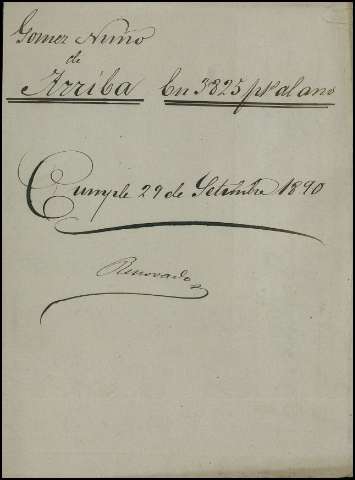 Gomez Nuño
de
Arriba En 3825 pts al año
Cumple 29 de Setiembre 1890
Renovado